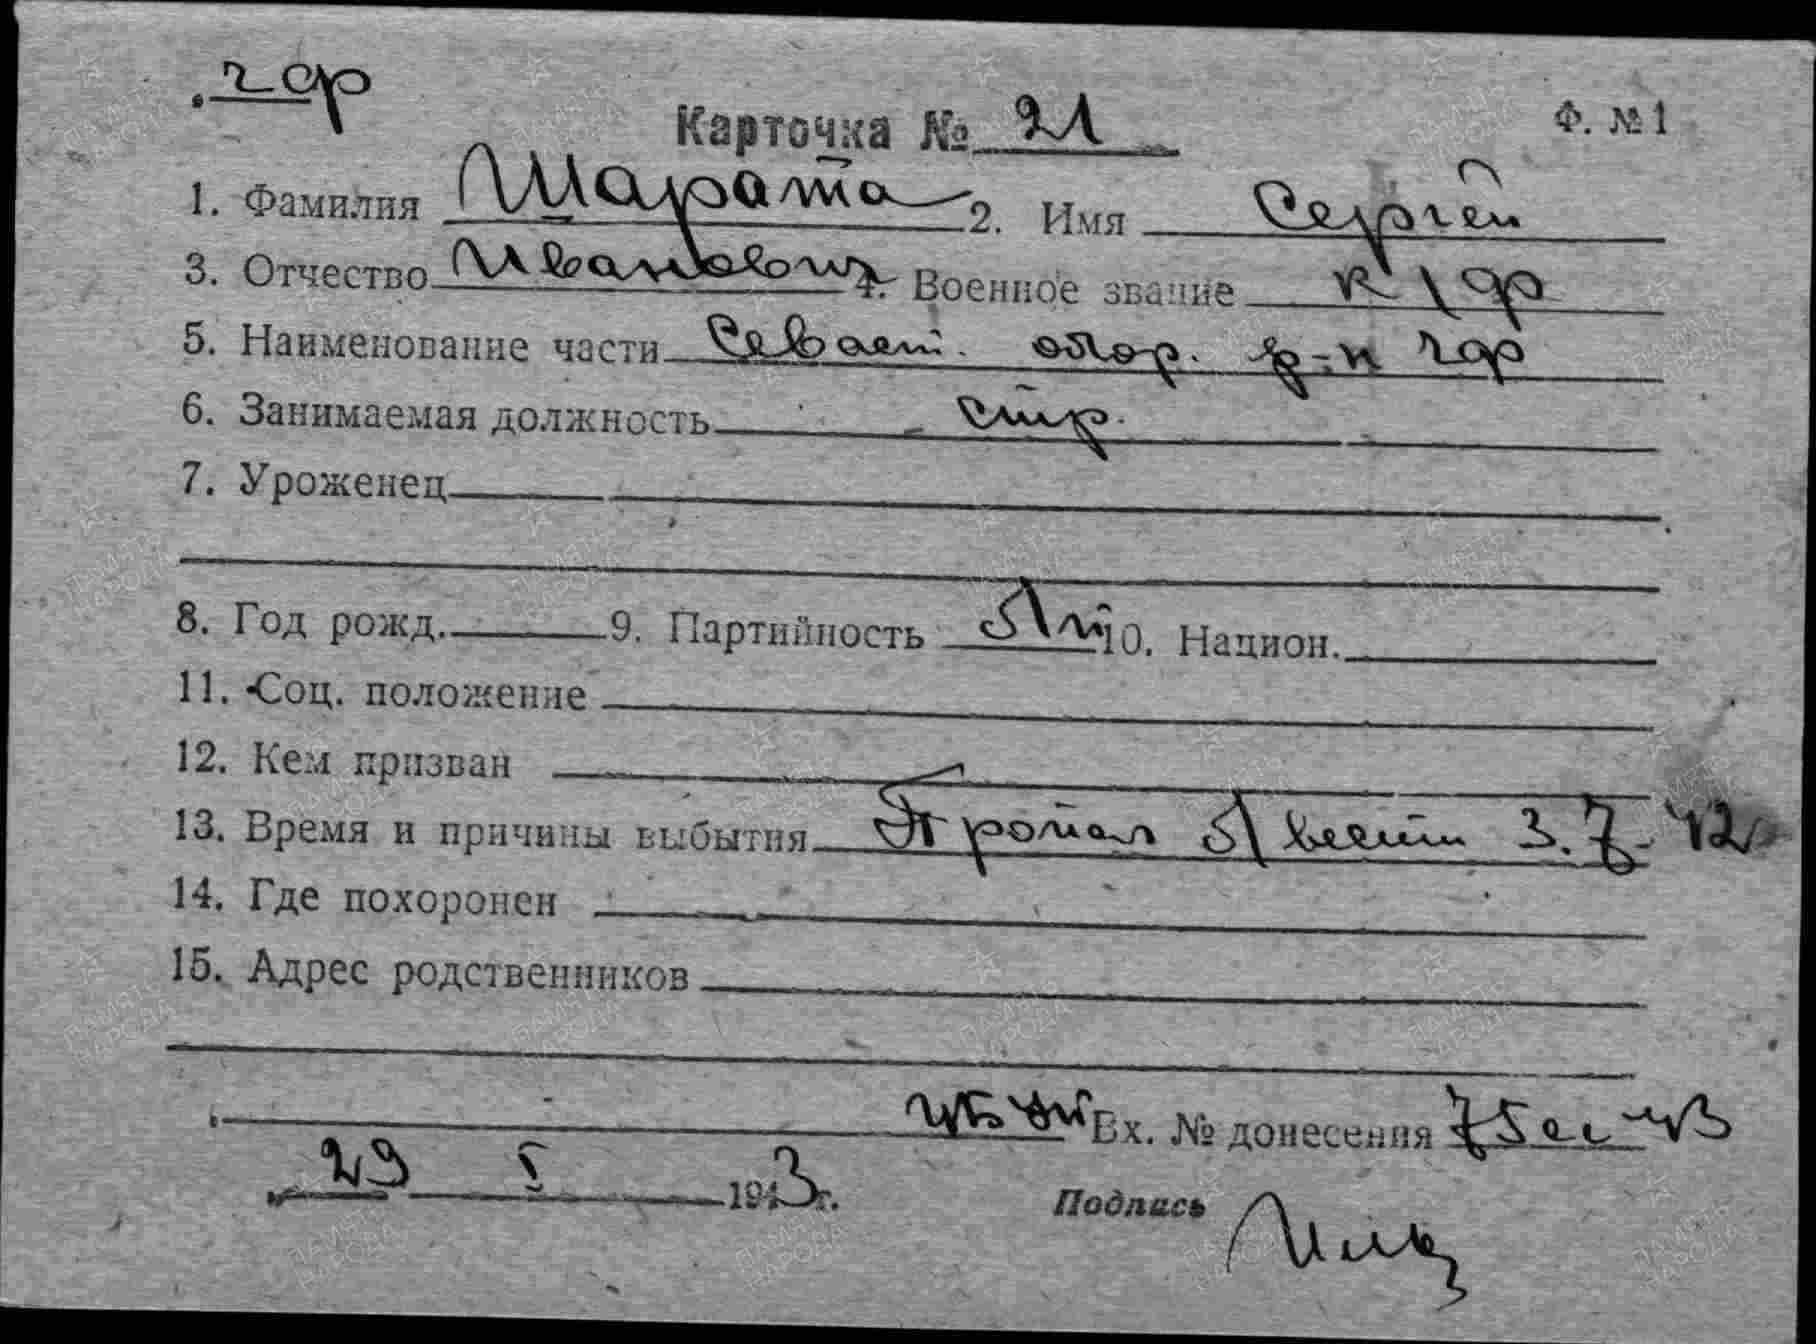 чф
Карточка № 21 Ф. № 1
1. Фамилия Шарата 2. Имя Сергей
3. Отчество Иванович 4. Военное звание к/ф
5. Наименование части Севаст. обор. р-н чф
6. Занимаемая должность стр.
7. Уроженец
8. Год рожд. 9. Партийность б/п 10. Национ.
11. Соц. положение
12. Кем призван
13. Время и причины выбытия Пропал б/вести 3.7.42
14. Где похоронен
15. Адрес родственников
Вх. № донесения 75сс 43
29 I 1943 г. Подпись